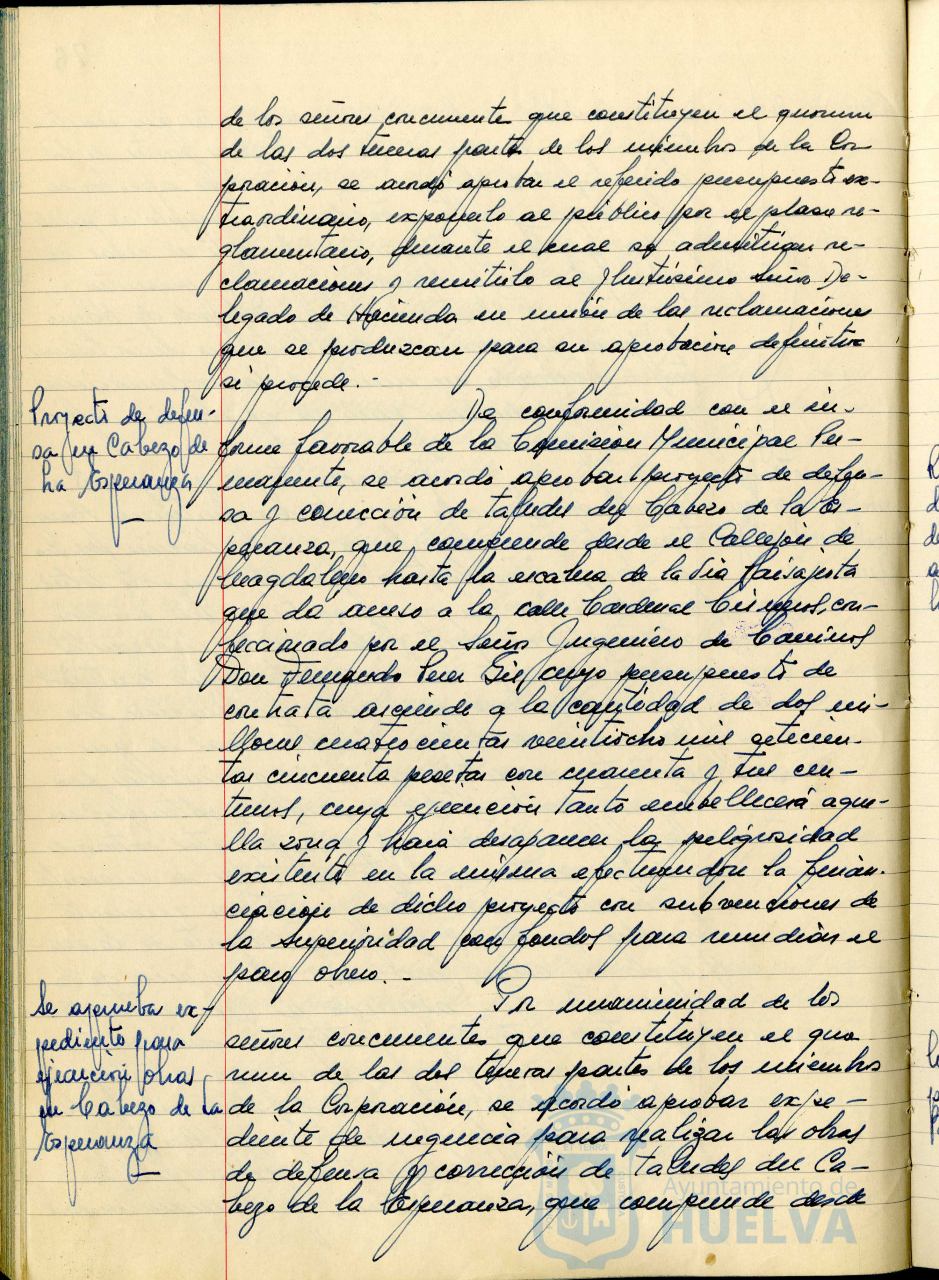 de los señores concurrentes que constituyen el quorum
de las dos terceras partes de los miembros de la Cor-
poración, se acordó aprobar el referido presupuesto ex-
traordinario, exponerlo al público por el plazo re-
glamentario, durante el cual se admitirían re-
clamaciones y remitirlo al Ilustrísimo Señor De-
legado de Hacienda en unión de las reclamaciones
que se produzcan para su aprobación definitiva
si procede.-
Proyecto de defen-
sa en Cabezo de
La Esperanza
De conformidad con el in-
forme favorable de la Comisión Municipal Per-
manente, se acordó aprobar proyecto de defen-
sa y corrección de taludes del Cabezo de la Es-
peranza, que comprende desde el Callejón de
Magdaleno hasta la escalera de la Vía Paisajista
que da acceso a la calle Cardenal Cisneros, con-
feccionado por el Señor Ingeniero de Caminos
Don Fernando Perez Gil, cuyo presupuesto de
contrata asciende a la cantidad de dos mi-
llones cuatrocientas veintiocho mil setecien-
tas cincuenta pesetas con cuarenta y tres cen-
timos, cuya ejecución tanto embellecerá aque-
lla zona y hará desaparecer la peligrosidad
existente en la misma efectuandose la finan-
ciación de dicho proyecto con subvenciones de
la Superioridad con fondos para remediar el
paro obrero.-
Se aprueba ex-
pediente para
ejecución obras
en Cabezo de La
Esperanza
Por unanimidad de los
señores concurrentes que constituyen el quo
rum de las dos terceras partes de los miembros
de la Corporación, se acordó aprobar expe-
diente de urgencia para realizar las obras
de defensa y corrección de taludes del Ca-
bezo de la Esperanza, que comprende desde
Ayuntamiento de
HUELVA